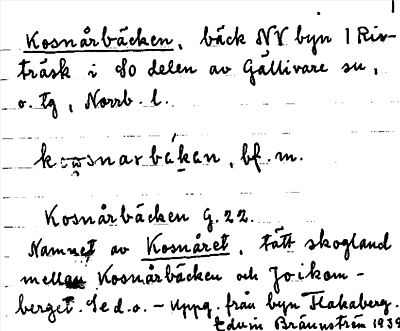 Kosnårbäcken, bäck NV byn 1 Riv-
träsk i So delen av Gällivare sn,
o. tg, Norrb. l.
bf. m.
Kosnårbäcken G. 22.
Namnet av Kosnåret, tätt skogland
mellan Kosnårbäcken och Joikom-
berget. Se d. o. – Uppg. från byn Flakaberg.
Edvin Brännström 1939